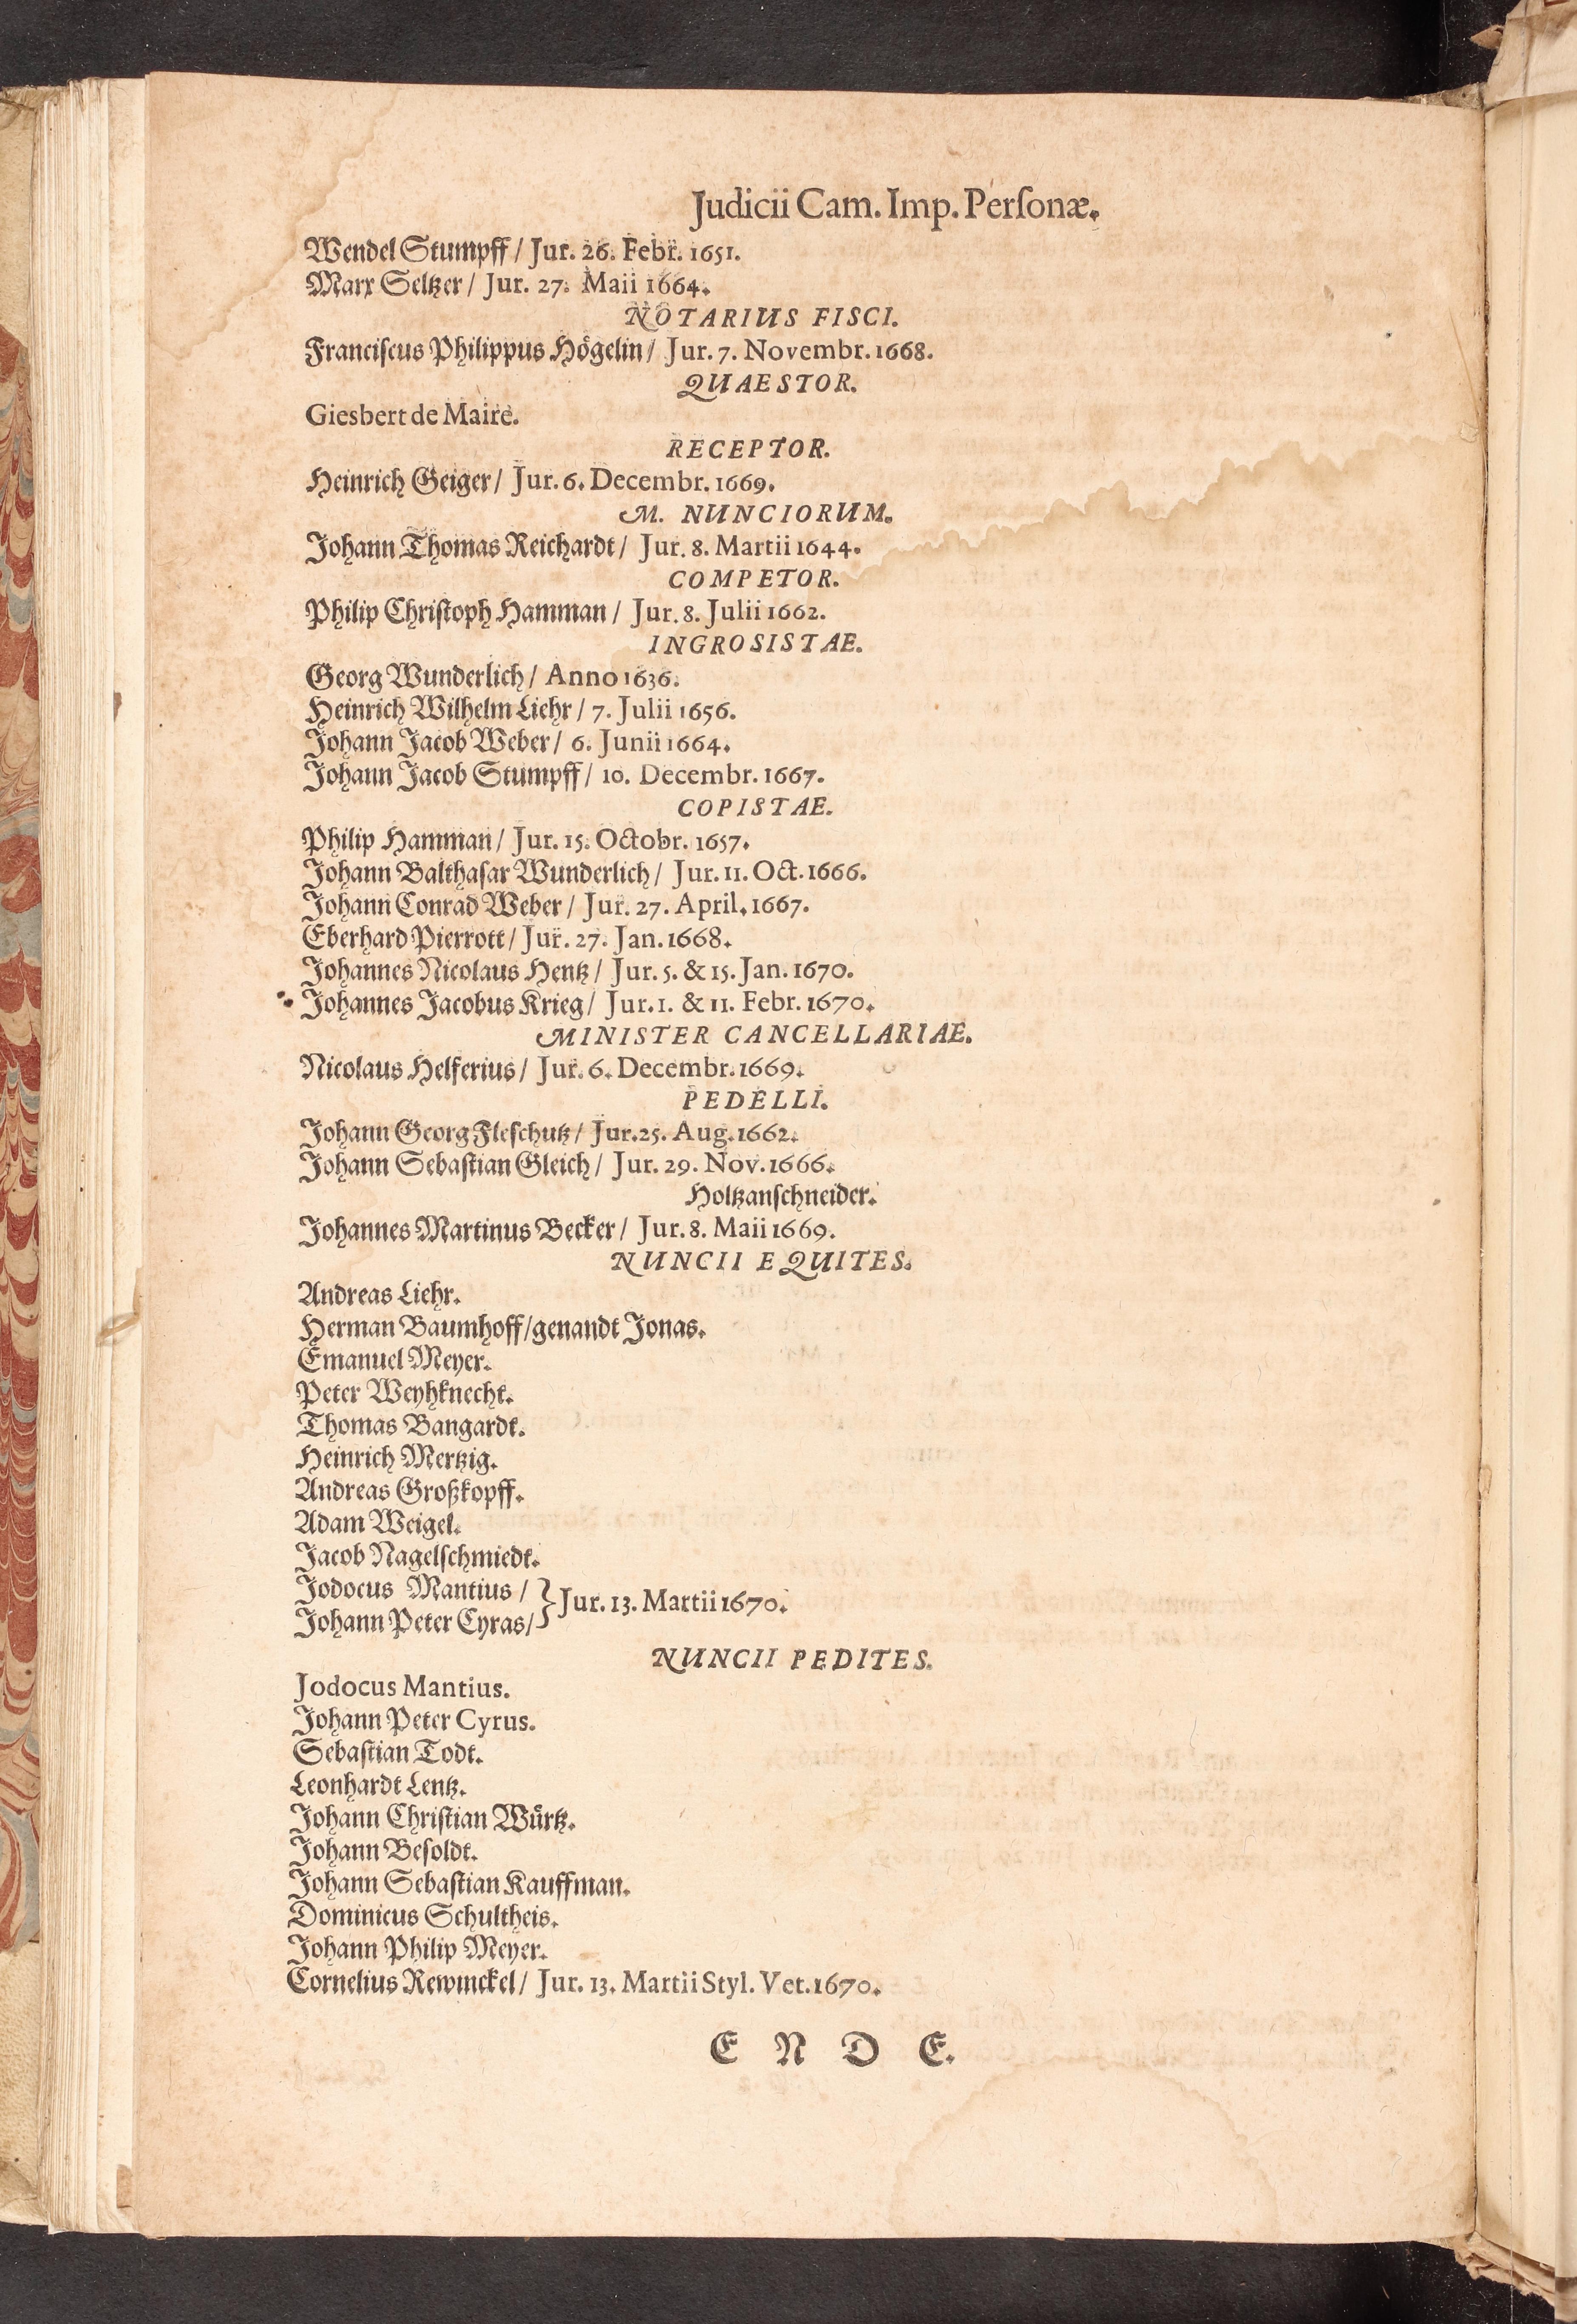 Judicii Cam. Imp. Perſonæ.
Wendel Stumpff / Jur. 26. Febr. 1651.
Marx Seltzer / Jur. 27. Maii 1664.
NOTARIUS FISCI.
Franciſcus Philippus Högelin / Jur. 7. Novembr. 1668.
QUAESTOR.
Giesbert de Maire.
RECEPTOR.
Heinrich Geiger / Jur. 6. Decembr. 1669.
M. NUNCIORUM.
Johann Thomas Reichardt / Jur. 8. Martii 1644.
COMPETOR.
Philip Chriſtoph Hamman / Jur. 8. Julii 1662.
INGROSISTAE.
Georg Wunderlich / Anno 1636.
Heinrich Wilhelm Liehr / 7. Julii 1656.
Johann Jacob Weber / 6. Junii 1664.
Johann Jacob Stumpff / 10. Decembr. 1667.
COPISTAE.
Philip Hamman / Jur. 15. Octobr. 1657.
Johann Balthaſar Wunderlich / Jur. 11. Oct. 1666.
Johann Conrad Weber / Jur. 27. April. 1667.
Eberhard Pierrott / Jur. 27. Jan. 1668.
Johannes Nicolaus Hentz / Jur. 5. & 15. Jan. 1670.
Johannes Jacobus Krieg / Jur. 1. & 11. Febr. 1670.
MINISTER CANCELLARIAE.
Nicolaus Helferius / Jur. 6. Decembr. 1669.
PEDELLI.
Johann Georg Fleſchutz / Jur. 25. Aug. 1662.
Johann Sebaſtian Gleich / Jur. 29. Nov. 1666.
Holtzanſchneider.
Johannes Martinus Becker / Jur. 8. Maii 1669.
NUNCII EQUITES.
Andreas Liehr.
Herman Baumhoff / genandt Jonas.
Emanuel Meyer.
Peter Weyhknecht.
Thomas Bangardt.
Heinrich Mertzig.
Andreas Großkopff.
Adam Weigel.
Jacob Nagelſchmiedt.
Jodocus Mantius /
Johann Peter Cyras / } Jur. 13. Martii 1670.
NUNCII PEDITES.
Jodocus Mantius.
Johann Peter Cyrus.
Sebaſtian Todt.
Leonhardt Lentz.
Johann Chriſtian Würtz.
Johann Beſoldt.
Johann Sebaſtian Kauffman.
Dominicus Schultheis.
Johann Philip Meyer.
Cornelius Rewinckel / Jur. 13. Martii Styl. Vet. 1670.
E N D E.